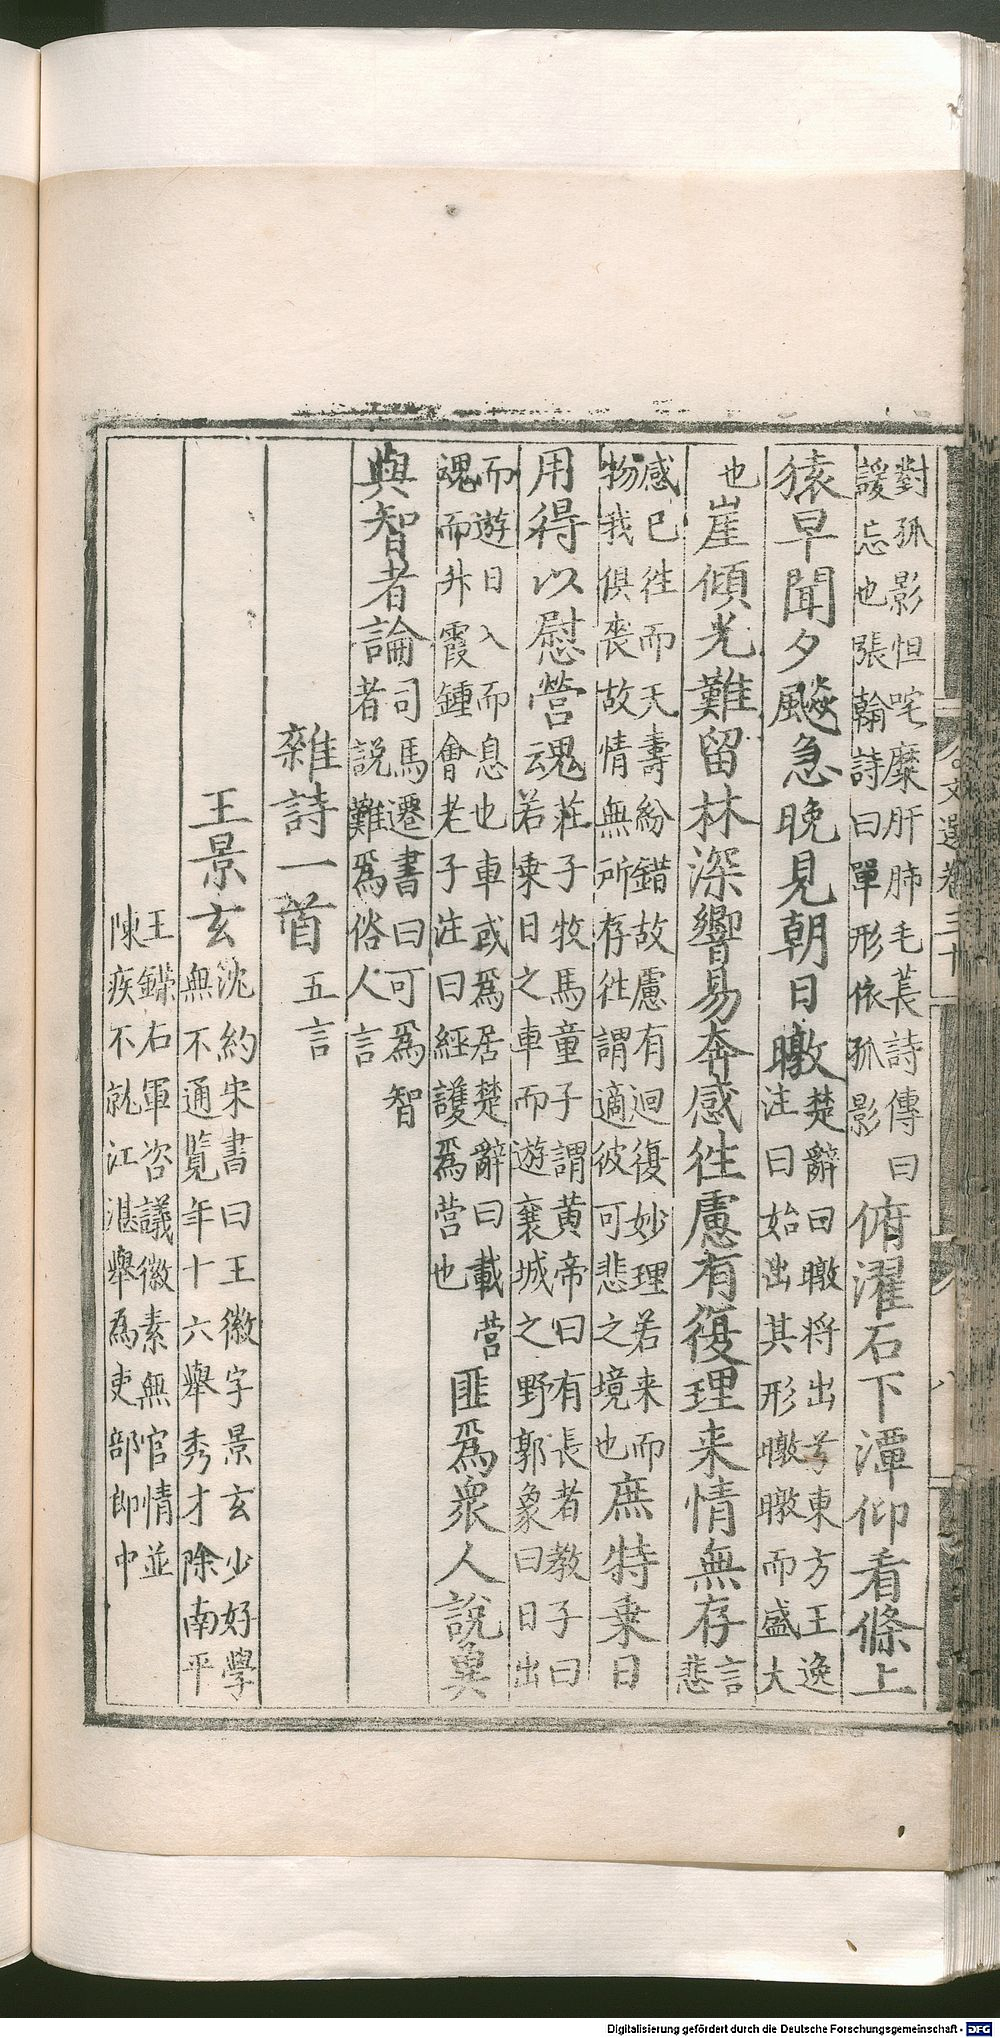 對孤影怛咤糜肝肺毛萇詩傳曰
諼忘也張翰詩曰單形依孤影
俯濯石下潭仰看條上
猿早聞夕飈急晚見朝日暾
楚辭曰暾將出兮東方王逸
注曰始出其形暾暾而盛大
也
崖傾光難留林深響易奔感徃慮有復理来情無存
言
悲
感已徃而夭壽紛錯故慮有迴復妙理若来而
物我俱喪故情無所存徃謂適彼可悲之境也
庶特乗日
用得以慰營魂
莊子牧馬童子謂黄帝曰有長者教予曰
若乗日之車而遊襄城之野郭象曰日出
而遊日入而息也車或爲居楚辭曰載營
魂而升霞鍾會老子注曰經護爲營也
匪爲衆人說冀
與智者論
司馬遷書曰可爲智
者說難爲俗人言
雜詩一首
五言
王景玄
沈約宋書曰王徽字景玄少好學
無不通覧年十六舉秀才除南平
王鑠右軍咨議徽素無宦情並
陳疾不就江湛舉為吏部郎中
文選卷三十
八
Digitalisierung gefördert durch die Deutsche Forschungsgemeinschaft - DFG